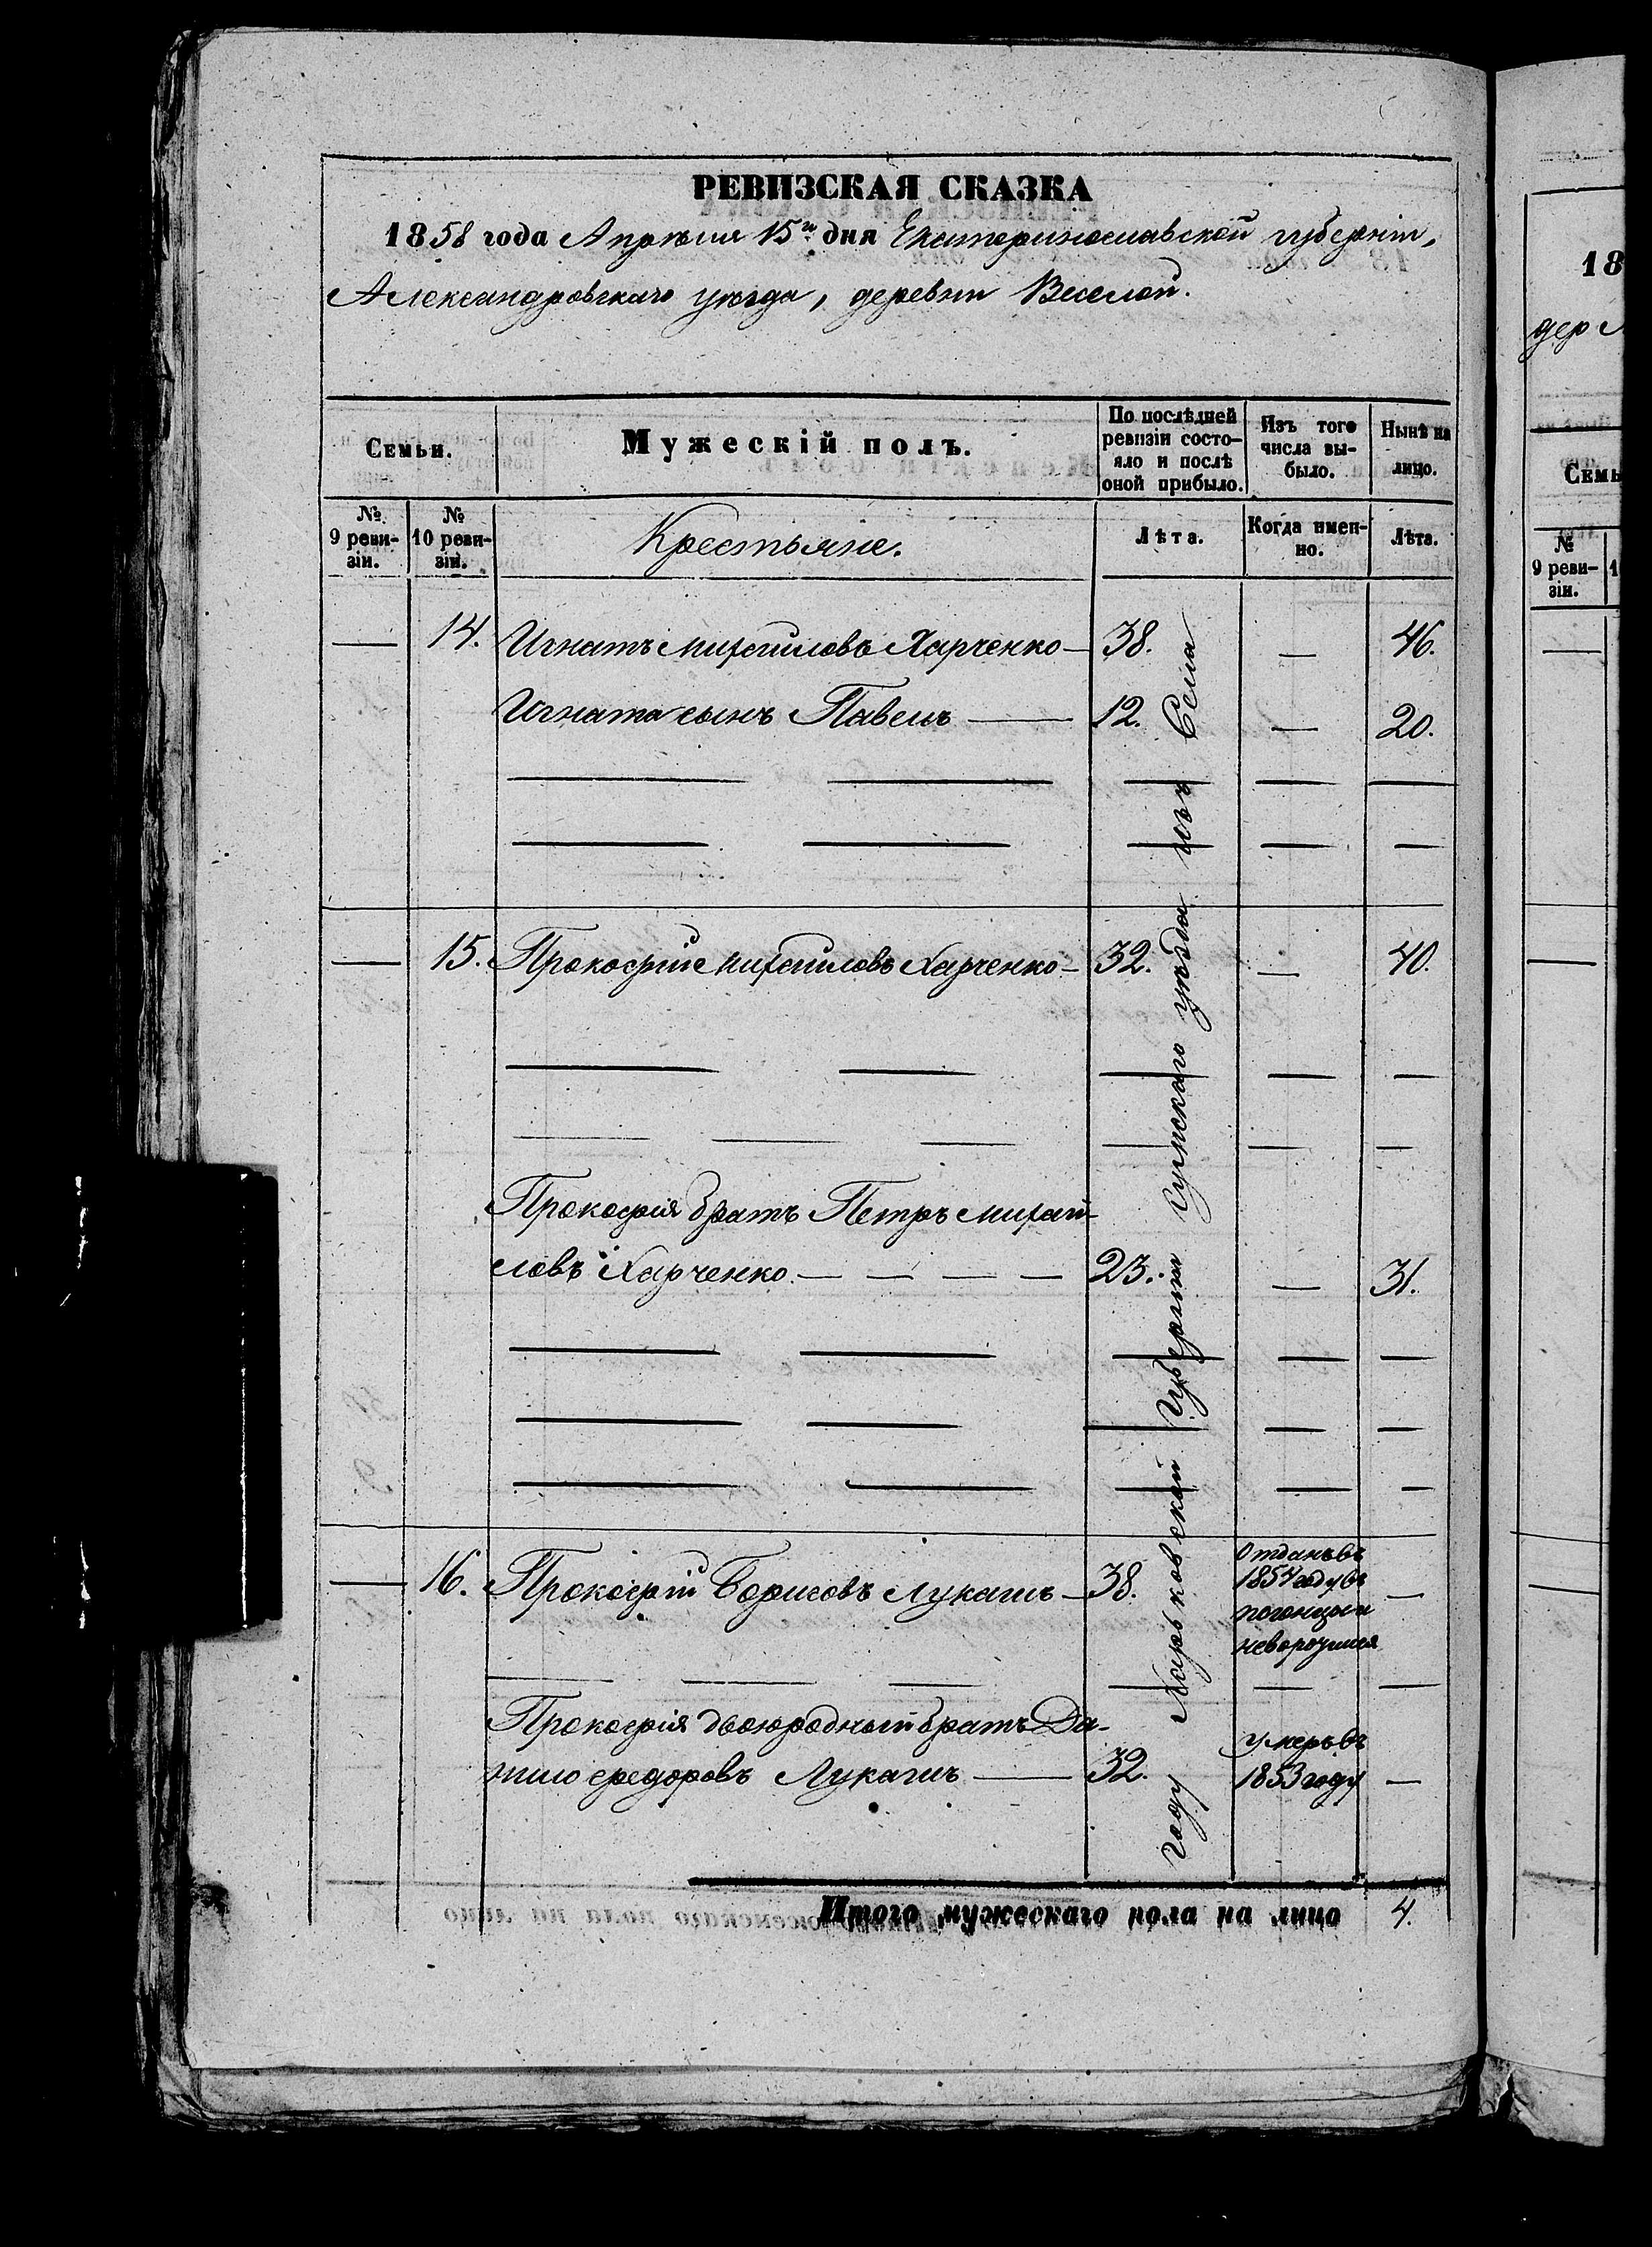 РЕВИЗСКАЯ СКАЗКА
1858 года Апрѣля 15го дня Екатеринославской губерніи,
Александровскаго уѣзда, деревни Веселой.
Семьи.
Мужескій полъ.
По послѣдней ревизіи состо-
яло и послѣ
оной прибыло.
Изъ того
числа вы-
было.
Нынѣ на
лицо.
№
9 реви-
зіи.
№
10 реви-
зіи.
Крестьяне.
Лѣта.
Когда имен-
но.
Лѣта.
14. Игнатъ Михайловъ Харченко — 38. — 46.
Игната сынъ Павелъ — 12. — 20.
15. Прокофій Михайловъ Харченко — 32. — 40.
Прокофія братъ Петръ Михай-
ловъ Харченко — — — — 23. — 31.
16. Прокофій Борисовъ Лукашъ — 38. —
Отданъ въ
1854 году въ
погонцы и
Прокофія двоюродный братъ Да-
нило Федоровъ Лукашъ — 32. —
умеръ въ
1853 году
году Харьковской Губерніи Сумскаго уѣзда изъ Села
Итого мужескаго пола на лицо 4.
18
дер
Семь
№
9 реви-
зіи.